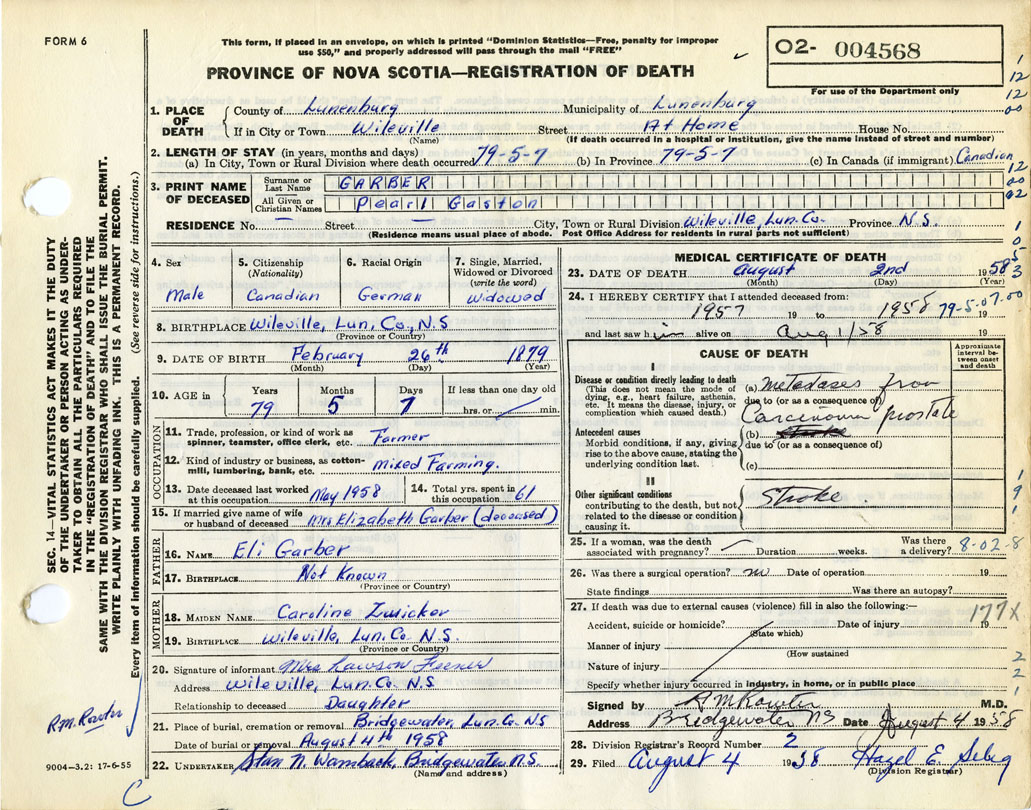 FORM 6
This form, if placed in an envelope, on which is printed "Dominion Statistics—Free, penalty for improper
use $50," and properly addressed will pass through the mail "FREE"
O2- 004568
For use of the Department only
PROVINCE OF NOVA SCOTIA—REGISTRATION OF DEATH
SEC. 14—VITAL STATISTICS ACT MAKES IT THE DUTY
OF THE UNDERTAKER OR PERSON ACTING AS UNDER-
TAKER TO OBTAIN ALL THE PARTICULARS REQUIRED
IN THE "REGISTRATION OF DEATH" AND TO FILE THE
SAME WITH THE DIVISION REGISTRAR WHO SHALL ISSUE THE BURIAL PERMIT.
WRITE PLAINLY WITH UNFADING INK. THIS IS A PERMANENT RECORD.
Every item of information should be carefully supplied. (See reverse side for instructions.)
1. PLACE OF DEATH County of Lunenburg Municipality of Lunenburg
If in City or Town Wileville Street At Home House No.
(Name) (If death occurred in a hospital or institution, give the name instead of street and number)
2. LENGTH OF STAY (in years, months and days)
(a) In City, Town or Rural Division where death occurred 79-5-7 (b) In Province 79-5-7 (c) In Canada (if immigrant) Canadian
3. PRINT NAME OF DECEASED Surname or Last Name GARBER
All Given or Christian Names Pearl Gaston
RESIDENCE No. — Street — City, Town or Rural Division Wileville, Lun. Co. Province N.S.
(Residence means usual place of abode. Post Office Address for residents in rural parts not sufficient)
4. Sex Male
5. Citizenship (Nationality) Canadian
6. Racial Origin German
7. Single, Married, Widowed or Divorced (write the word) Widowed
8. BIRTHPLACE Wileville, Lun. Co., N.S
(Province or Country)
9. DATE OF BIRTH February 26th 1879
(Month) (Day) (Year)
10. AGE in Years 79 Months 5 Days 7 If less than one day old hrs. or min.
OCCUPATION
11. Trade, profession, or kind of work as spinner, teamster, office clerk, etc. Farmer
12. Kind of industry or business, as cotton-mill, lumbering, bank, etc. Mixed Farming.
13. Date deceased last worked at this occupation May 1958
14. Total yrs. spent in this occupation 61
15. If married give name of wife or husband of deceased Mrs Elizabeth Garber (deceased)
FATHER
16. NAME Eli Garber
17. BIRTHPLACE Not Known
(Province or Country)
MOTHER
18. MAIDEN NAME Caroline Zwicker
19. BIRTHPLACE Wileville, Lun. Co. N.S.
(Province or Country)
20. Signature of informant Mrs Lawson Feener
Address Wileville, Lun. Co. N.S
Relationship to deceased Daughter
21. Place of burial, cremation or removal Bridgewater, Lun. Co. N.S
Date of burial or removal August 4th 1958
22. UNDERTAKER Stan N. Wamback, Bridgewater, N.S.
(Name and address)
9004-3.2: 17-6-55
C
MEDICAL CERTIFICATE OF DEATH
23. DATE OF DEATH August 2nd 1958
(Month) (Day) (Year)
24. I HEREBY CERTIFY that I attended deceased from:
1957 19 to 1958 19
79-5-07.00
and last saw him alive on Aug 1/58 19
CAUSE OF DEATH
Approximate interval between onset and death
I
Disease or condition directly leading to death
(This does not mean the mode of dying, e.g., heart failure, asthenia, etc. It means the disease, injury, or complication which caused death.)
(a) metastases from
due to (or as a consequence of)
Carcinoma prostate
Antecedent causes
Morbid conditions, if any, giving rise to the above cause, stating the underlying condition last.
(b) Stroke
due to (or as a consequence of)
(c)
II
Other significant conditions
contributing to the death, but not related to the disease or condition causing it.
Stroke
25. If a woman, was the death associated with pregnancy? Duration weeks. Was there a delivery?
8-02-8
26. Was there a surgical operation? no Date of operation 19
State findings Was there an autopsy?
27. If death was due to external causes (violence) fill in also the following:—
177X
Accident, suicide or homicide? Date of injury 19
(State which)
Manner of injury
(How sustained
Nature of injury
Specify whether injury occurred in industry, in home, or in public place
Signed by M.D.
Address Bridgewater NS Date August 4 1958
28. Division Registrar's Record Number 2
29. Filed August 4 1958 Hazel E.
(Division Registrar)